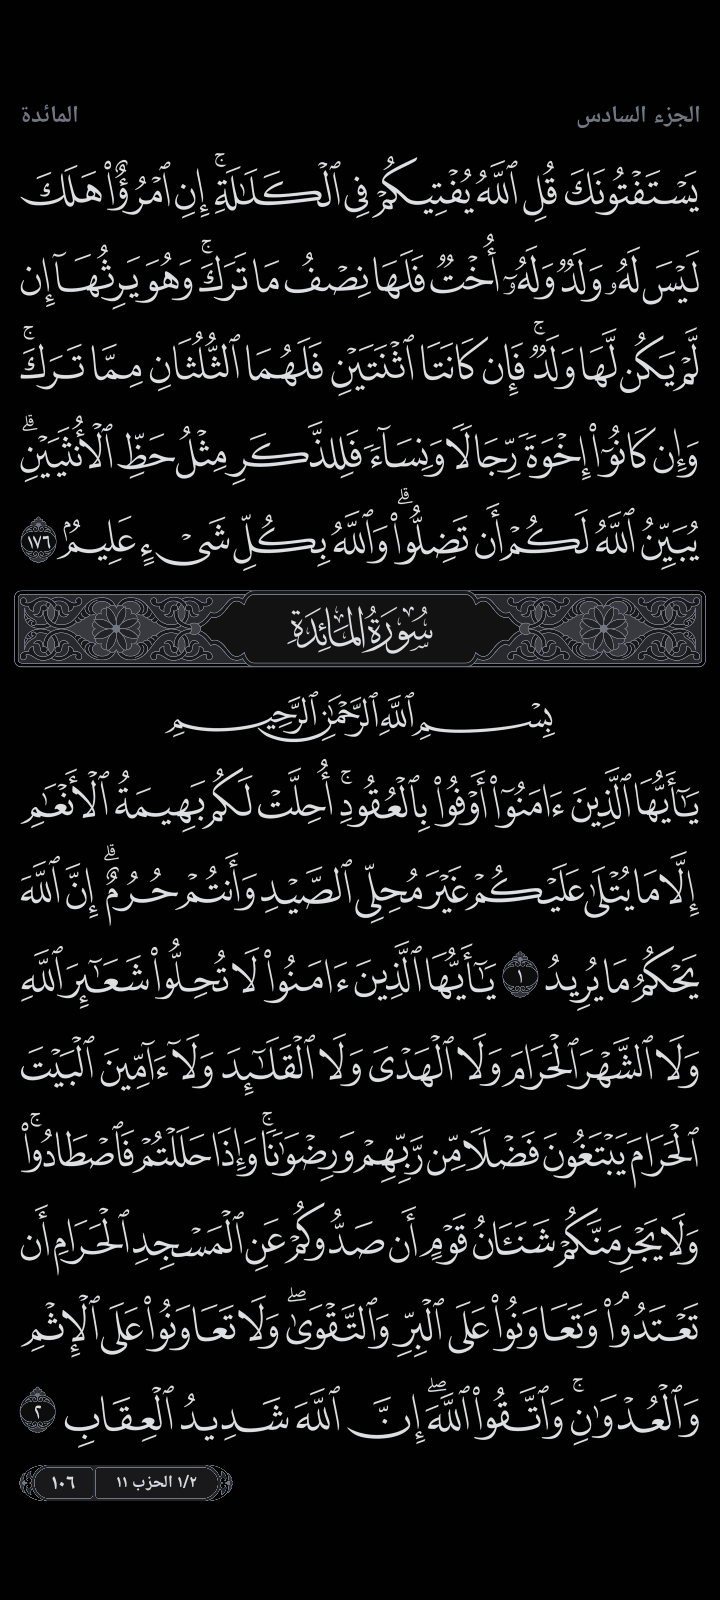 الجزء السادس
المائدة
يَسْتَفْتُونَكَ قُلِ ٱللَّهُ يُفْتِيكُمْ فِى ٱلْكَلَـٰلَةِ ۚ إِنِ ٱمْرُؤٌا۟ هَلَكَ
لَيْسَ لَهُۥ وَلَدٌ وَلَهُۥٓ أُخْتٌ فَلَهَا نِصْفُ مَا تَرَكَ ۚ وَهُوَ يَرِثُهَآ إِن
لَّمْ يَكُن لَّهَا وَلَدٌ ۚ فَإِن كَانَتَا ٱثْنَتَيْنِ فَلَهُمَا ٱلثُّلُثَانِ مِمَّا تَرَكَ ۚ
وَإِن كَانُوٓا۟ إِخْوَةً رِّجَالًا وَنِسَآءً فَلِلذَّكَرِ مِثْلُ حَظِّ ٱلْأُنثَيَيْنِ ۗ
يُبَيِّنُ ٱللَّهُ لَكُمْ أَن تَضِلُّوا۟ ۗ وَٱللَّهُ بِكُلِّ شَىْءٍ عَلِيمٌۢ ١٧٦
سُورَةُ المَائِدَةِ
بِسْمِ ٱللَّهِ ٱلرَّحْمَـٰنِ ٱلرَّحِيمِ
يَـٰٓأَيُّهَا ٱلَّذِينَ ءَامَنُوٓا۟ أَوْفُوا۟ بِٱلْعُقُودِ ۚ أُحِلَّتْ لَكُم بَهِيمَةُ ٱلْأَنْعَـٰمِ
إِلَّا مَا يُتْلَىٰ عَلَيْكُمْ غَيْرَ مُحِلِّى ٱلصَّيْدِ وَأَنتُمْ حُرُمٌ ۗ إِنَّ ٱللَّهَ
يَحْكُمُ مَا يُرِيدُ ١ يَـٰٓأَيُّهَا ٱلَّذِينَ ءَامَنُوا۟ لَا تُحِلُّوا۟ شَعَـٰٓئِرَ ٱللَّهِ
وَلَا ٱلشَّهْرَ ٱلْحَرَامَ وَلَا ٱلْهَدْىَ وَلَا ٱلْقَلَـٰٓئِدَ وَلَآ ءَآمِّينَ ٱلْبَيْتَ
ٱلْحَرَامَ يَبْتَغُونَ فَضْلًا مِّن رَّبِّهِمْ وَرِضْوَٰنًا ۚ وَإِذَا حَلَلْتُمْ فَٱصْطَادُوا۟ ۚ
وَلَا يَجْرِمَنَّكُمْ شَنَـَٔانُ قَوْمٍ أَن صَدُّوكُمْ عَنِ ٱلْمَسْجِدِ ٱلْحَرَامِ أَن
تَعْتَدُوا۟ ۘ وَتَعَاوَنُوا۟ عَلَى ٱلْبِرِّ وَٱلتَّقْوَىٰ ۖ وَلَا تَعَاوَنُوا۟ عَلَى ٱلْإِثْمِ
وَٱلْعُدْوَٰنِ ۚ وَٱتَّقُوا۟ ٱللَّهَ ۖ إِنَّ ٱللَّهَ شَدِيدُ ٱلْعِقَابِ ٢
١/٢ الحزب ١١
١٠٦